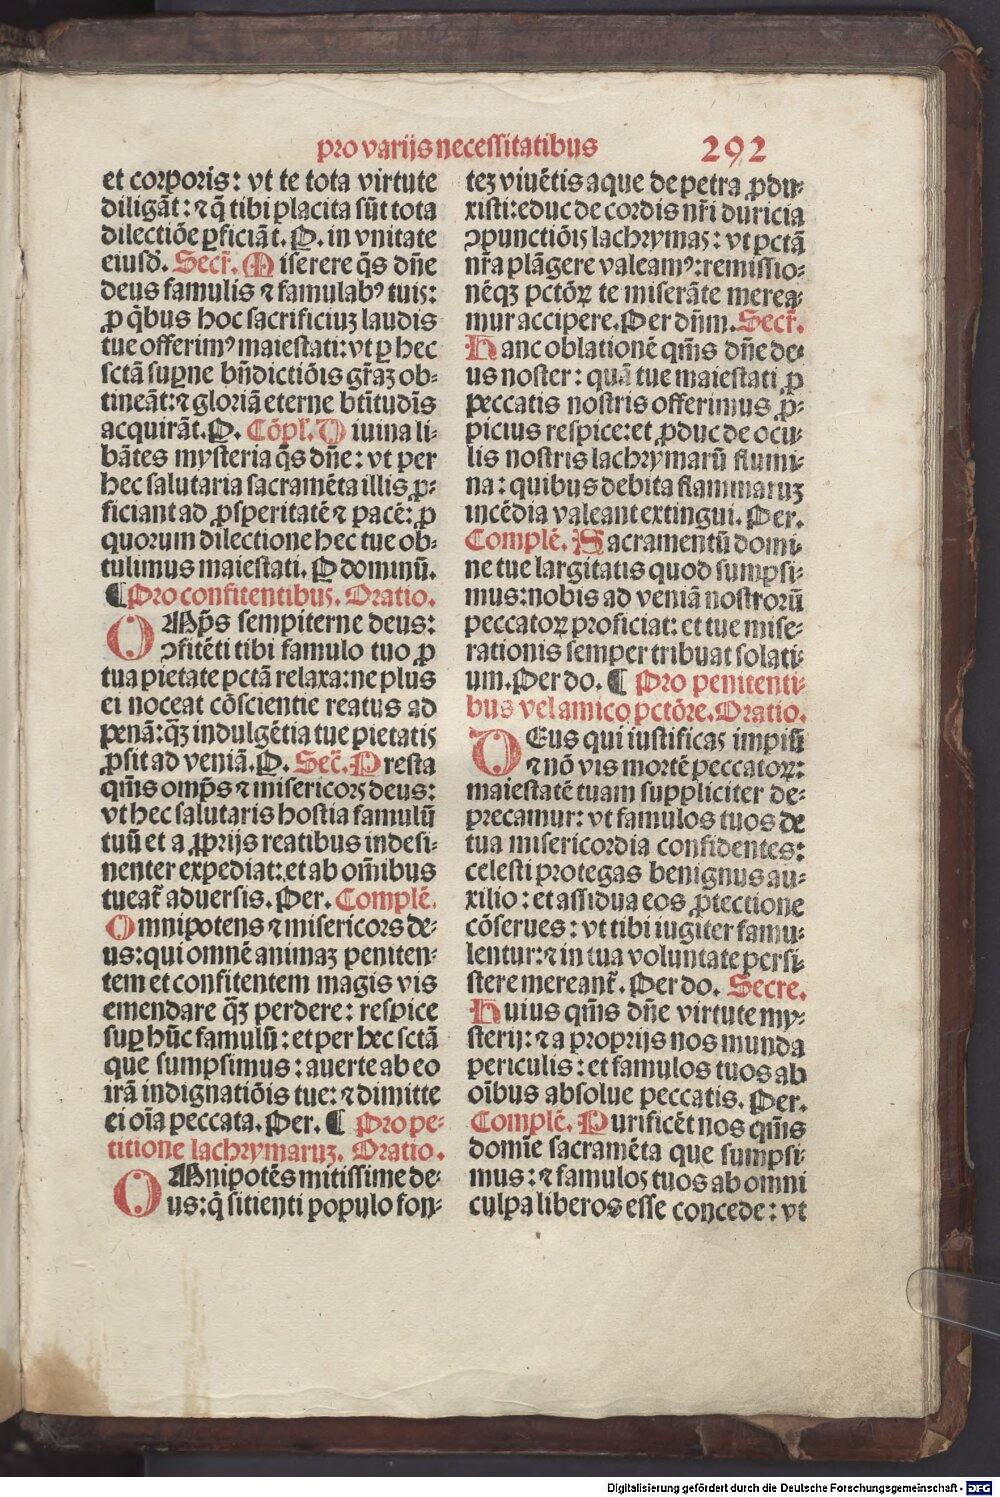 pro varijs necessitatibus 292
et corporis: vt te tota virtute
diligāt: ⁊ q̄ tibi placita sūt tota
dilectiōe ꝑficiāt. P. in vnitate
eiusd̄. Secr̄. Miserere q̄s dn̄e
deus famulis ⁊ famulabꝰ tuis:
ꝓ q̄bus hoc sacrificiuꝫ laudis
tue offerimꝰ maiestati: vt ꝑ hec
sctā suꝑne bn̄dictiōis gr̄aꝫ ob-
tineāt: ⁊ gloriā eterne btītudīs
acquirāt. P. Cōpl. Diuina li-
bātes mysteria q̄s dn̄e: vt per
hec salutaria sacramēta illis ꝓ-
ficiant ad ꝓsperitatē ⁊ pacē: ꝓ
quorum dilectione hec tue ob-
tulimus maiestati. P dominū.
¶ Pro confitentibus. Oratio.
OMp̄s sempiterne deus:
ↄfitēti tibi famulo tuo ꝓ
tua pietate pctā relaxa: ne plus
ei noceat cōscientie reatus ad
penā: q̄ꝫ indulgētia tue pietatis
ꝓsit ad veniā. P. Secr̄. Presta
qm̄s omp̄s ⁊ misericors deus:
vt hec salutaris hostia famulū
tuū et a ꝓprijs reatibus indesi-
nenter expediat: et ab oīnibus
tueat̄ aduersis. Per. Complē.
Omnipotens ⁊ misericors de-
us: qui omnē animaꝫ peniten-
tem et confitentem magis vis
emendare q̄ꝫ perdere: respice
suꝑ hūc famulū: et per hec sctā
que sumpsimus: auerte ab eo
irā indignatiōis tue: ⁊ dimitte
ei oīa peccata. Per. ¶ Pro pe-
titione lachrymaruꝫ. Oratio.
OMnipotēs mitissime de-
us: q̄ sitienti populo fon-
teꝫ viuētis aque de petra ꝓdu-
xisti: educ de cordis nr̄i duricia
ↄpunctiōis lachrymas: vt pctā
nr̄a plāgere valeamꝰ: remissio-
nēqꝫ pctōꝝ te miserāte merea-
mur accipere. Per dn̄m. Secr̄.
Hanc oblationē qm̄s dn̄e de-
us noster: quā tue maiestati ꝓ
peccatis nostris offerimus ꝓ-
picius respice: et ꝓduc de ocu-
lis nostris lachrymarū flumi-
na: quibus debita flammaruꝫ
incēdia valeant extingui. Per.
Complē. Sacramentū domi-
ne tue largitatis quod sumpsi-
mus: nobis ad veniā nostrorū
peccatoꝝ proficiat: et tue mise-
rationis semper tribuat solati-
um. Per do. ¶ Pro penitenti-
bus vel amico pctōre. Oratio.
DEus qui iustificas impiū
⁊ nō vis mortē peccatoꝝ:
maiestatē tuam suppliciter de-
precamur: vt famulos tuos de
tua misericordia confidentes:
celesti protegas benignus au-
xilio: et assidua eos ꝓtectione
cōserues: vt tibi iugiter famu-
lentur: ⁊ in tua voluntate persi-
stere mereant̄. Per do. Secre.
Huius qm̄s dn̄e virtute my-
sterij: ⁊ a proprijs nos munda
periculis: et famulos tuos ab
oībus absolue peccatis. Per.
Complē. Purificēt nos qm̄s
domīe sacramēta que sumpsi-
mus: ⁊ famulos tuos ab omni
culpa liberos esse concede: vt
Digitalisierung gefördert durch die Deutsche Forschungsgemeinschaft - DFG